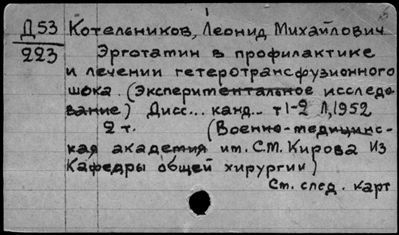 Д53 Котельников, Леонид Михайлович
223 Эрготатин в профилактике
и лечении гетеротрансфузионного
шока. (Экспериментальное исследо-
вание) Дисс... канд... т 1-2 Л, 1952
2 т. (Военно-медицинс-
кая академия им. С.М. Кирова Из
Кафедры общей хирургии)
См. след. карт